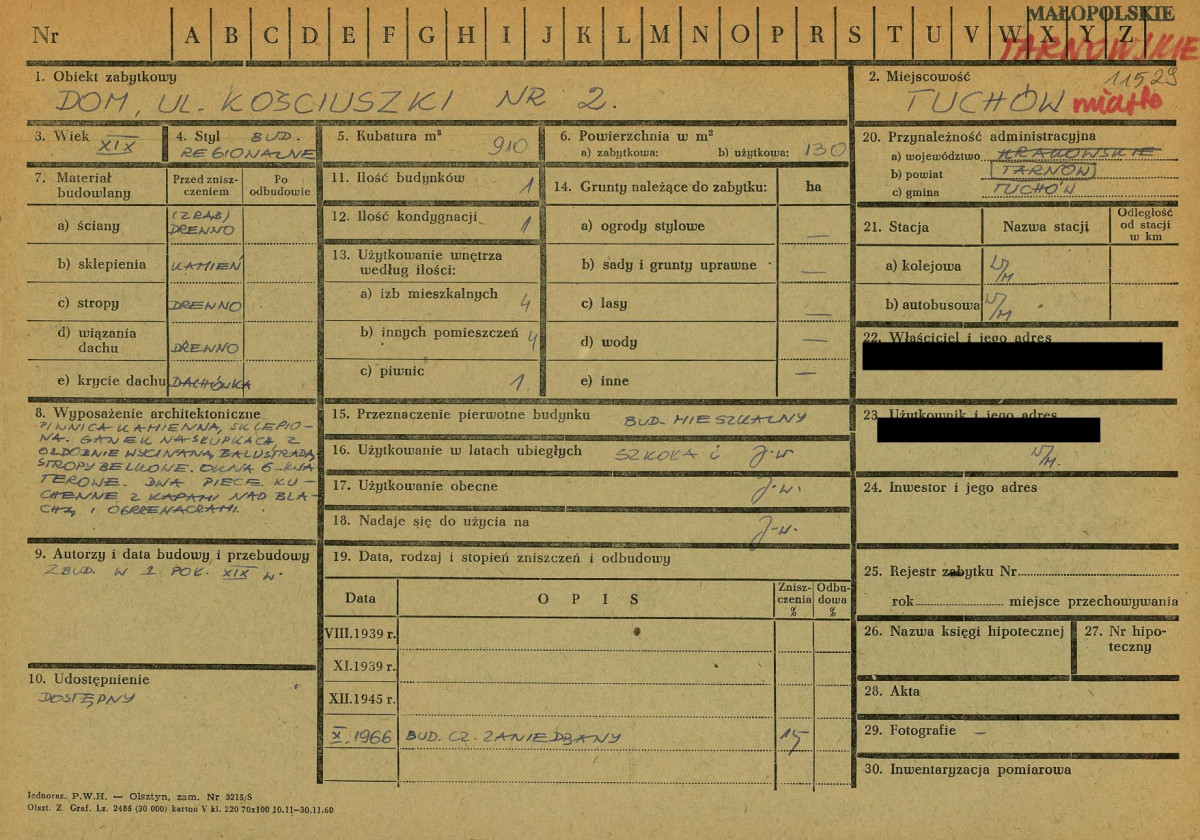 MAŁOPOLSKIE
Nr A B C D E F G H I J K L M N O P R S T U V W X Y Z
TARNOWSKIE
1. Obiekt zabytkowy
DOM, UL. KOŚCIUSZKI NR 2.
2. Miejscowość 11529
TUCHÓW miasto
3. Wiek XIX
4. Styl BUD.
REGIONALNE
5. Kubatura m³
910
6. Powierzchnia w m²
a) zabytkowa: b) użytkowa: 130
7. Materiał budowlany
Przed znisz-
czeniem
Po
odbudowie
a) ściany (ZRĄB)
DREWNO
b) sklepienia KAMIEŃ
c) stropy DREWNO
d) wiązania
dachu DREWNO
e) krycie dachu DACHÓWKA
8. Wyposażenie architektoniczne
PIWNICA KAMIENNA, SKLEPIO-
NA. GANEK NA SŁUPKACH, Z
OZDOBNIE WYCINANĄ BALUSTRADĄ,
STROPY BELKOWE. OKNA 6-KWA
TEROWE. DWA PIECE KU-
CHENNE Z KAPAMI NAD BLA-
CHĄ I OGRZEWACZAMI.
9. Autorzy i data budowy i przebudowy
ZBUD. W 2 POŁ. XIX w.
10. Udostępnienie
DOSTĘPNY
11. Ilość budynków 1
12. Ilość kondygnacji 1
13. Użytkowanie wnętrza
według ilości:
a) izb mieszkalnych 4
b) innych pomieszczeń 4
c) piwnic 1.
14. Grunty należące do zabytku: ha
a) ogrody stylowe —
b) sady i grunty uprawne —
c) lasy —
d) wody —
e) inne —
15. Przeznaczenie pierwotne budynku BUD. MIESZKALNY
16. Użytkowanie w latach ubiegłych SZKOŁA i J.w
17. Użytkowanie obecne J.w.
18. Nadaje się do użycia na J.w.
19. Data, rodzaj i stopień zniszczeń i odbudowy
Data
O P I S
Znisz-
czenia
%
Odbu-
dowa
%
VIII.1939 r.
XI.1939 r.
XII.1945 r.
X.1966 BUD. CZ. ZANIEDBANY 15
20. Przynależność administracyjna
a) województwo KRAKOWSKIE
b) powiat TARNÓW
c) gmina TUCHÓW
21. Stacja
Nazwa stacji
Odległość
od stacji
w km
a) kolejowa W/M
b) autobusowa W/M
22. Właściciel i jego adres
23. Użytkownik i jego adres
W/M.
24. Inwestor i jego adres
25. Rejestr zabytku Nr
rok miejsce przechowywania
26. Nazwa księgi hipotecznej
27. Nr hipo-
teczny
28. Akta
29. Fotografie –
30. Inwentaryzacja pomiarowa
Jednoraz. P.W.H. — Olsztyn, zam. Nr 3215/S
Olszt. Z. Graf. Lz. 2485 (30 000) karton V kl. 220 70x100 10.11—30.11.60